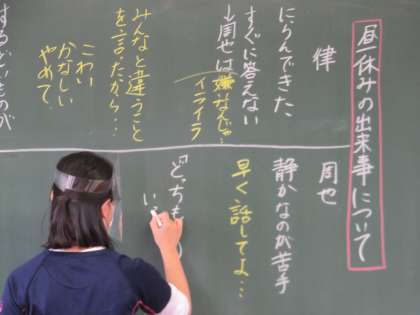 昼休みの出来事について
律
にらんできた、
すぐに答えない
→周也は嫌なんじゃ…
イライラ
みんなと違うこと
を言ったから…
こわい
かなしい
やめて、
するどいものが
周也
静かなのが苦手
早く話してよ…
「どっちも
い